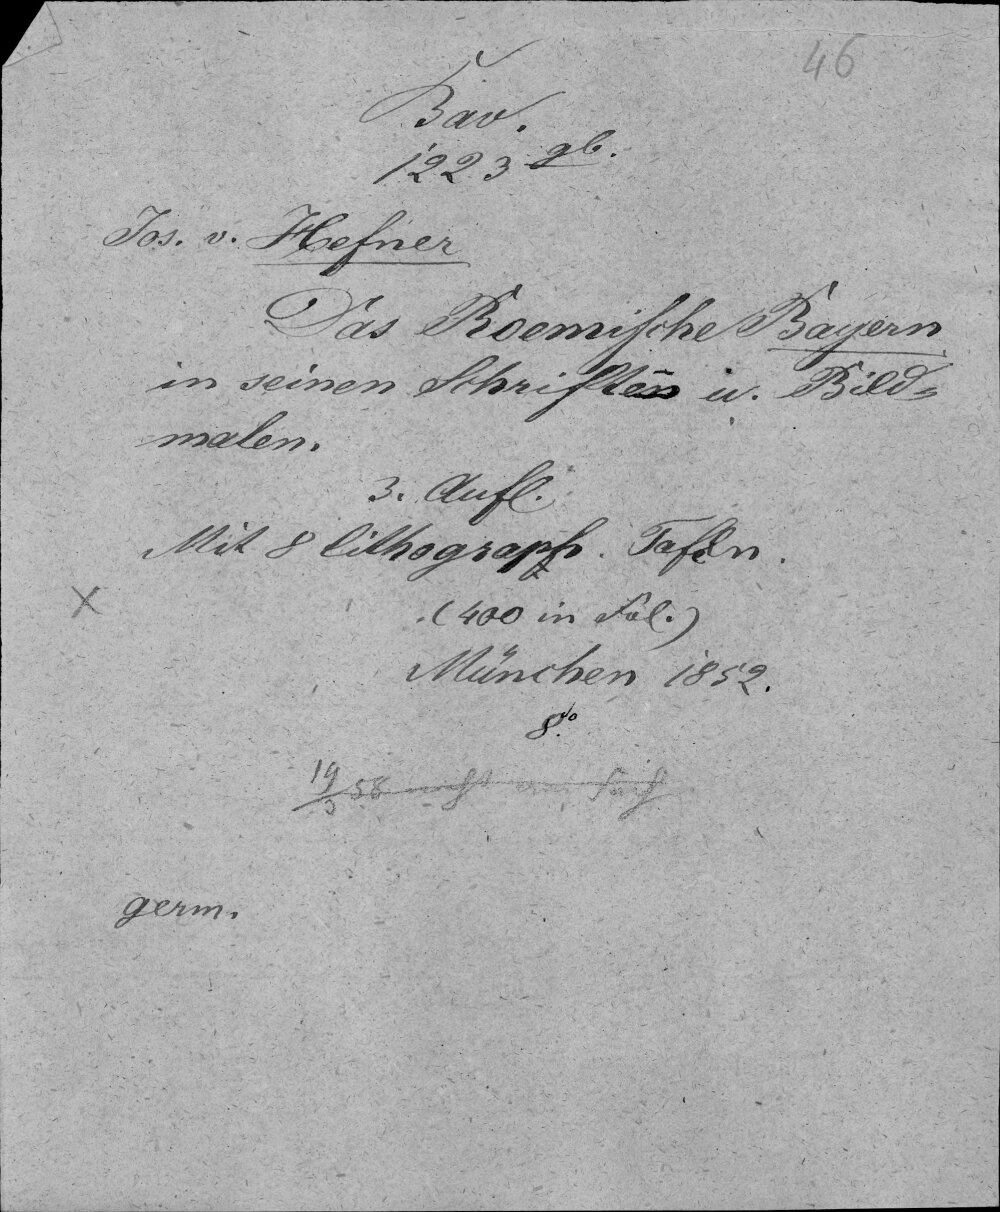 46
Bav.
1223 gb.
Jos. v. Hefner
Das Roemische Bayern
in seinen Schriften u. Bild-
malen.
3. Aufl.
Mit 8 lithograph. Tafeln.
X
(400 in Fol.)
München 1852.
8.vo
19/3 58 nicht am Fach
germ.